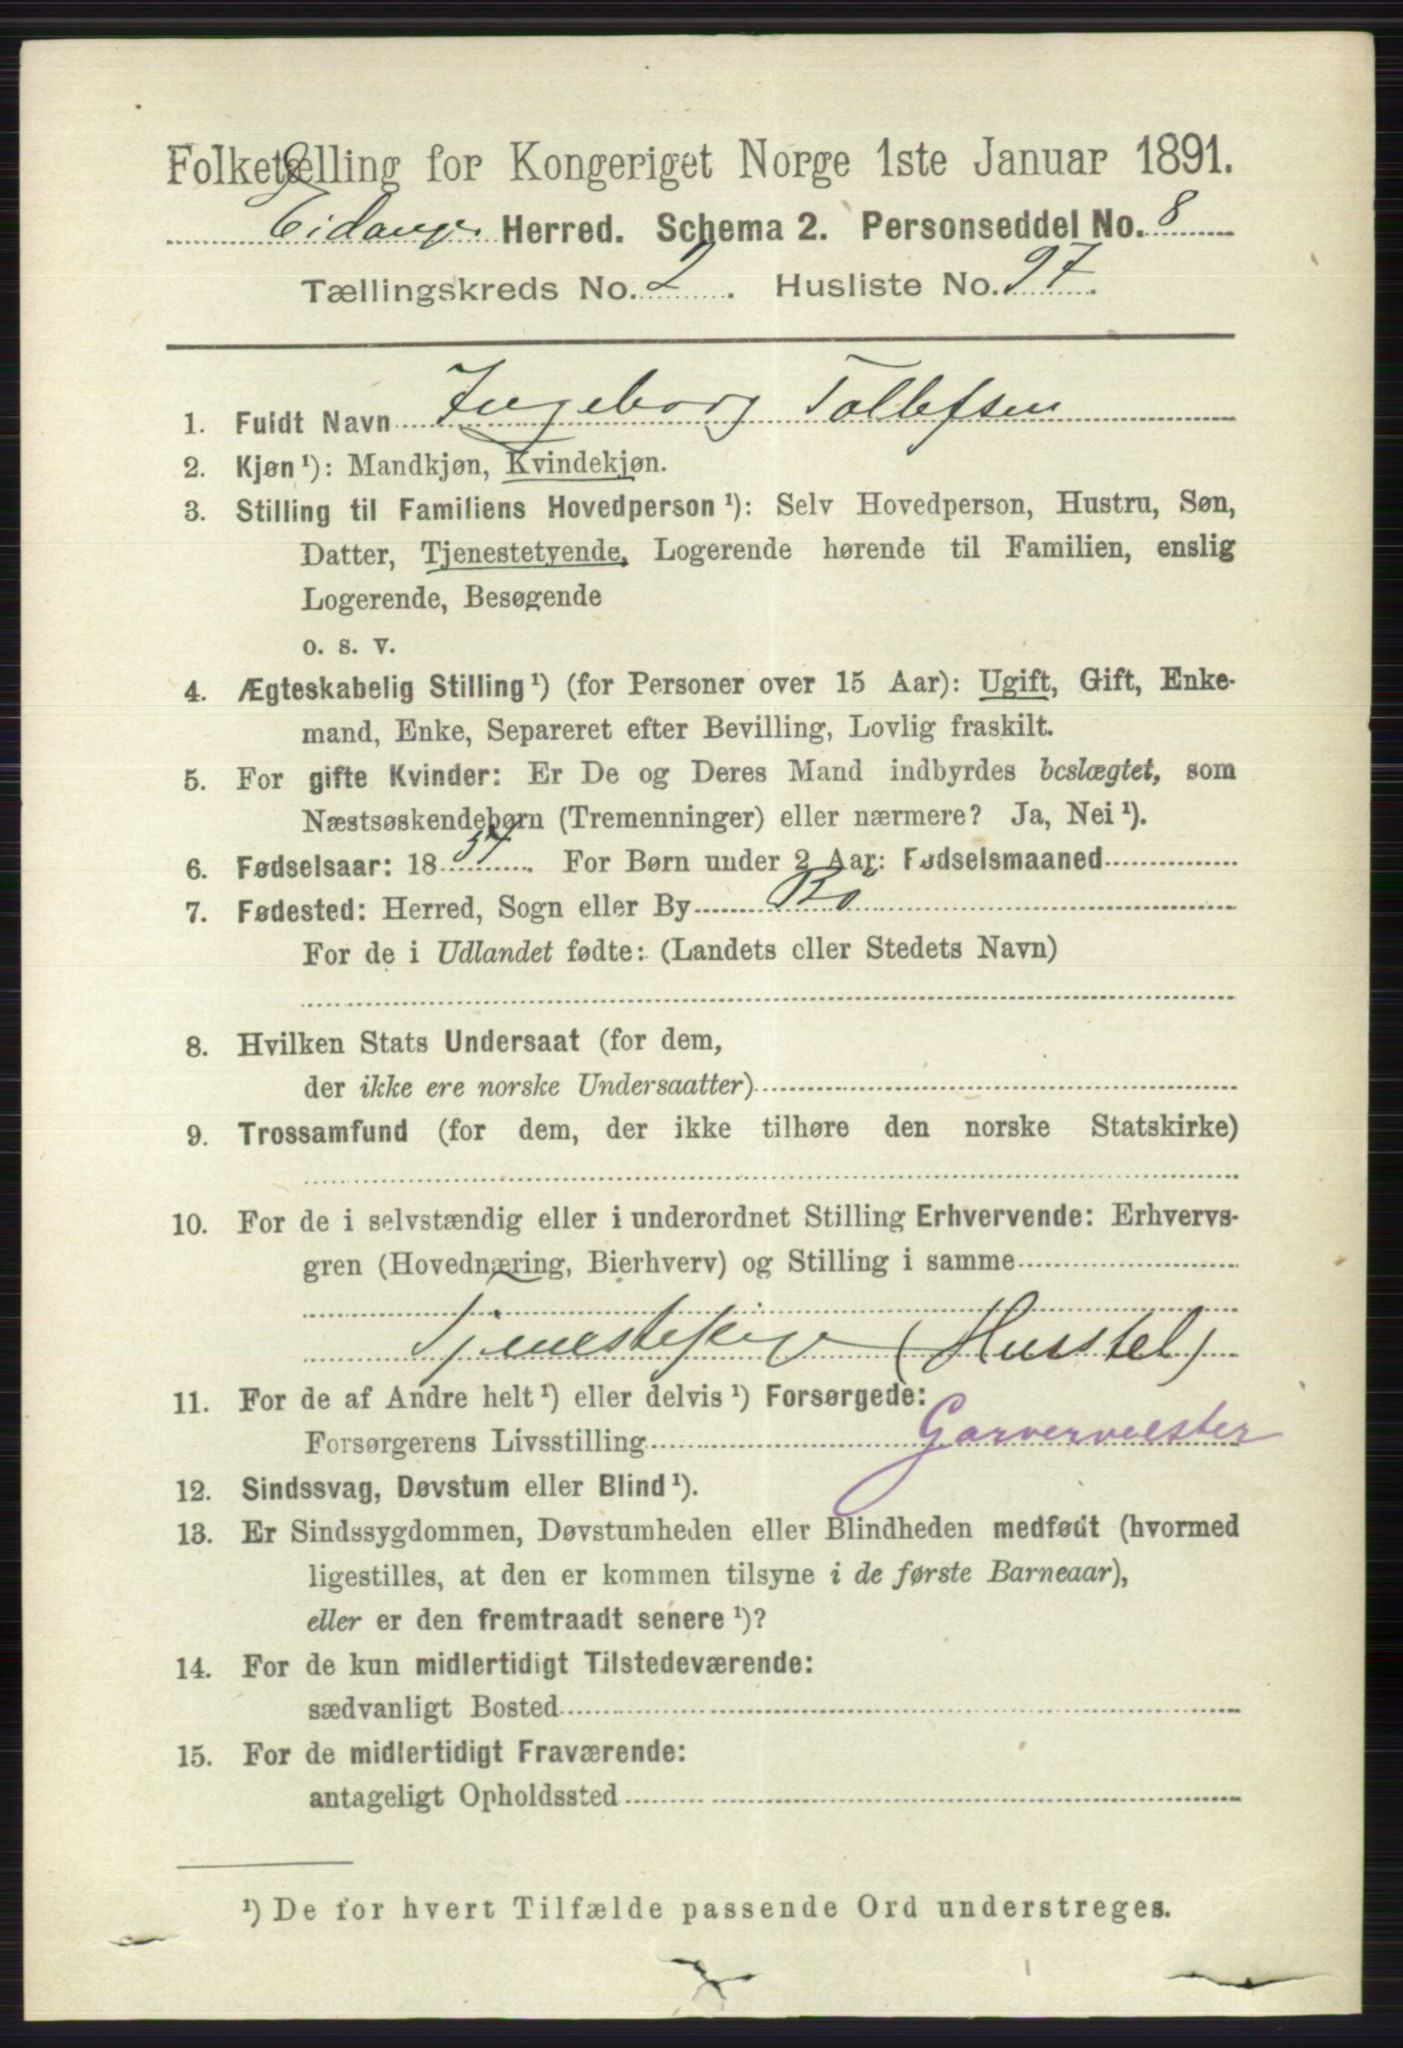 Folketælling for Kongeriget Norge 1ste Januar 1891.
Eidanger Herred. Schema 2. Personseddel No. 8
Tællingskreds No. 2. Husliste No. 97.
1. Fuldt Navn Ingeborg Tollefsen
2. Kjøn ¹): Mandkjøn, Kvindekjøn.
3. Stilling til Familiens Hovedperson ¹): Selv Hovedperson, Hustru, Søn,
Datter, Tjenestetyende, Logerende hørende til Familien, enslig
Logerende, Besøgende
o. s. v.
4. Ægteskabelig Stilling ¹) (for Personer over 15 Aar): Ugift, Gift, Enke-
mand, Enke, Separeret efter Bevilling, Lovlig fraskilt.
5. For gifte Kvinder: Er De og Deres Mand indbyrdes beslægtet, som
Næstsøskendebørn (Tremenninger) eller nærmere? Ja, Nei ¹).
6. Fødselsaar: 1857. For Børn under 2 Aar: Fødselsmaaned
7. Fødested: Herred, Sogn eller By Bö
For de i Udlandet fødte: (Landets eller Stedets Navn)
8. Hvilken Stats Undersaat (for dem,
der ikke ere norske Undersaatter)
9. Trossamfund (for dem, der ikke tilhøre den norske Statskirke)
10. For de i selvstændig eller i underordnet Stilling Erhvervende: Erhvervs-
gren (Hovednæring, Bierhverv) og Stilling i samme
Tjenestepige (Husstel)
11. For de af Andre helt ¹) eller delvis ¹) Forsørgede:
Forsørgerens Livsstilling Garvermester
12. Sindssvag, Døvstum eller Blind ¹).
13. Er Sindssygdommen, Døvstumheden eller Blindheden medfødt (hvormed
ligestilles, at den er kommen tilsyne i de første Barneaar),
eller er den fremtraadt senere ¹)?
14. For de kun midlertidigt Tilstedeværende:
sædvanligt Bosted
15. For de midlertidigt Fraværende:
antageligt Opholdssted
¹) De for hvert Tilfælde passende Ord understreges.